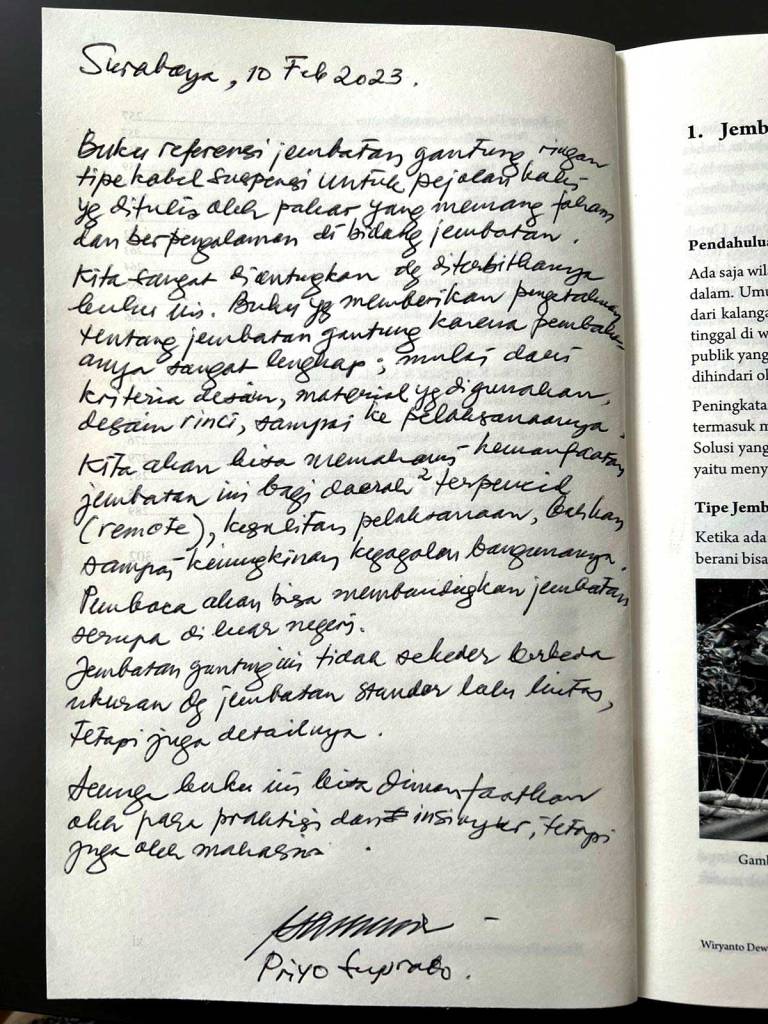 Surabaya, 10 Feb 2023.
Buku referensi jembatan gantung ringan
tipe kabel suspensi untuk pejalan kaki
yg ditulis oleh pakar yang memang faham
dan berpengalaman di bidang jembatan.
Kita sangat diuntungkan dg diterbitkannya
buku ini. Buku yg memberikan pengetahuan
tentang jembatan gantung karena pembaha-
anya sangat lengkap; mulai dari
kriteria desain, material yg digunakan,
desain rinci, sampai ke pelaksanaanya.
Kita akan bisa memahami kemanfaatan
jembatan ini bagi daerah² terpencil
(remote), kesulitan pelaksanaan, bahkan
sampai kemungkinan kegagalan bangunanya.
Pembaca akan bisa membandingkan jembatan
serupa di luar negeri.
Jembatan gantung ini tidak sekedar berbeda
ukuran dg jembatan standar lalu lintas,
tetapi juga detailnya.
Semoga buku ini bisa dimanfaatkan
oleh para praktisi dan insinyur, tetapi
juga oleh mahasiswa.
Priyo Suprobo.
1. Jemb
Pendahulua
Ada saja wila
dalam. Umu
dari kalanga
tinggal di w
publik yang
dihindari ol
Peningkata
termasuk m
Solusi yang
yaitu meny
Tipe Jemb
Ketika ada
berani bisa
Gamb
Wiryanto Dew